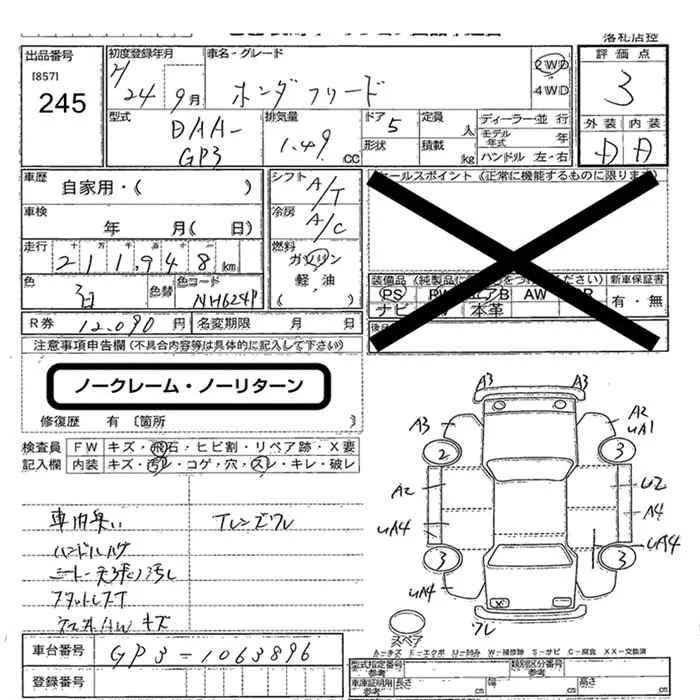 落札店控
出品番号
[857]
245
初度登録年月
H 24年 9月
車名・グレード
ホンダ フリード
2WD
4WD
評価点
3
外装 内装
D D
型式
DAA-
GP3
排気量
1.49 CC
ドア 5
形状
定員 人
積載 kg
ディーラー・並行
モデル年式 年
ハンドル 左・右
車歴
自家用・( )
車検
年 月( 日)
走行
十 万 千 百 十 一
211,948 km
色
白
色替
色コード
NH624P
シフト A/T
冷房 A/C
燃料
ガソリン
軽油
( )
セールスポイント (正常に機能するものに限ります)
新車保証書
有・無
PS
AW
ナビ
本革
R券 12,090 円
名変期限 月 日
注意事項申告欄 (不具合内容等は具体的に記入して下さい)
ノークレーム・ノーリターン
修復歴 有 〔箇所 〕
検査員
記入欄
FW キズ・飛石・ヒビ割・リペア跡・X要
内装 キズ・汚レ・コゲ・穴・スレ・キレ・破レ
車内臭い
Tレンズワレ
ハンドルハゲ
シート天張り汚レ
スタットレスT
キズ
A3 A3
A3
A2
UA1
2
3
A2
U2
UA4
A4
3
3
UA4
UA4
X
ワレ
スペア
A-キズ E-エクボ U-凹ミ W-補修跡 S-サビ C-腐食 XX-交換済
車台番号
GP3-1063896
登録番号
型式指定番号
参考
類別区分番号
参考
車庫証明用
参考
長さ cm
幅 cm
高さ cm